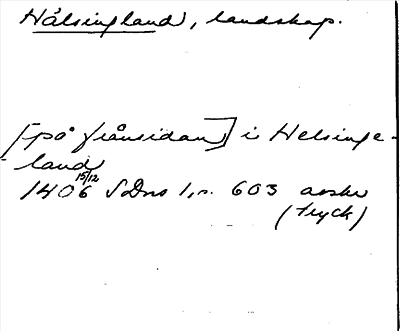 Hälsingland, landskap.
[på frånsidan] i Helsinge-
land
1406 15/12 SDns 1, s. 603 avskr
(tryck)